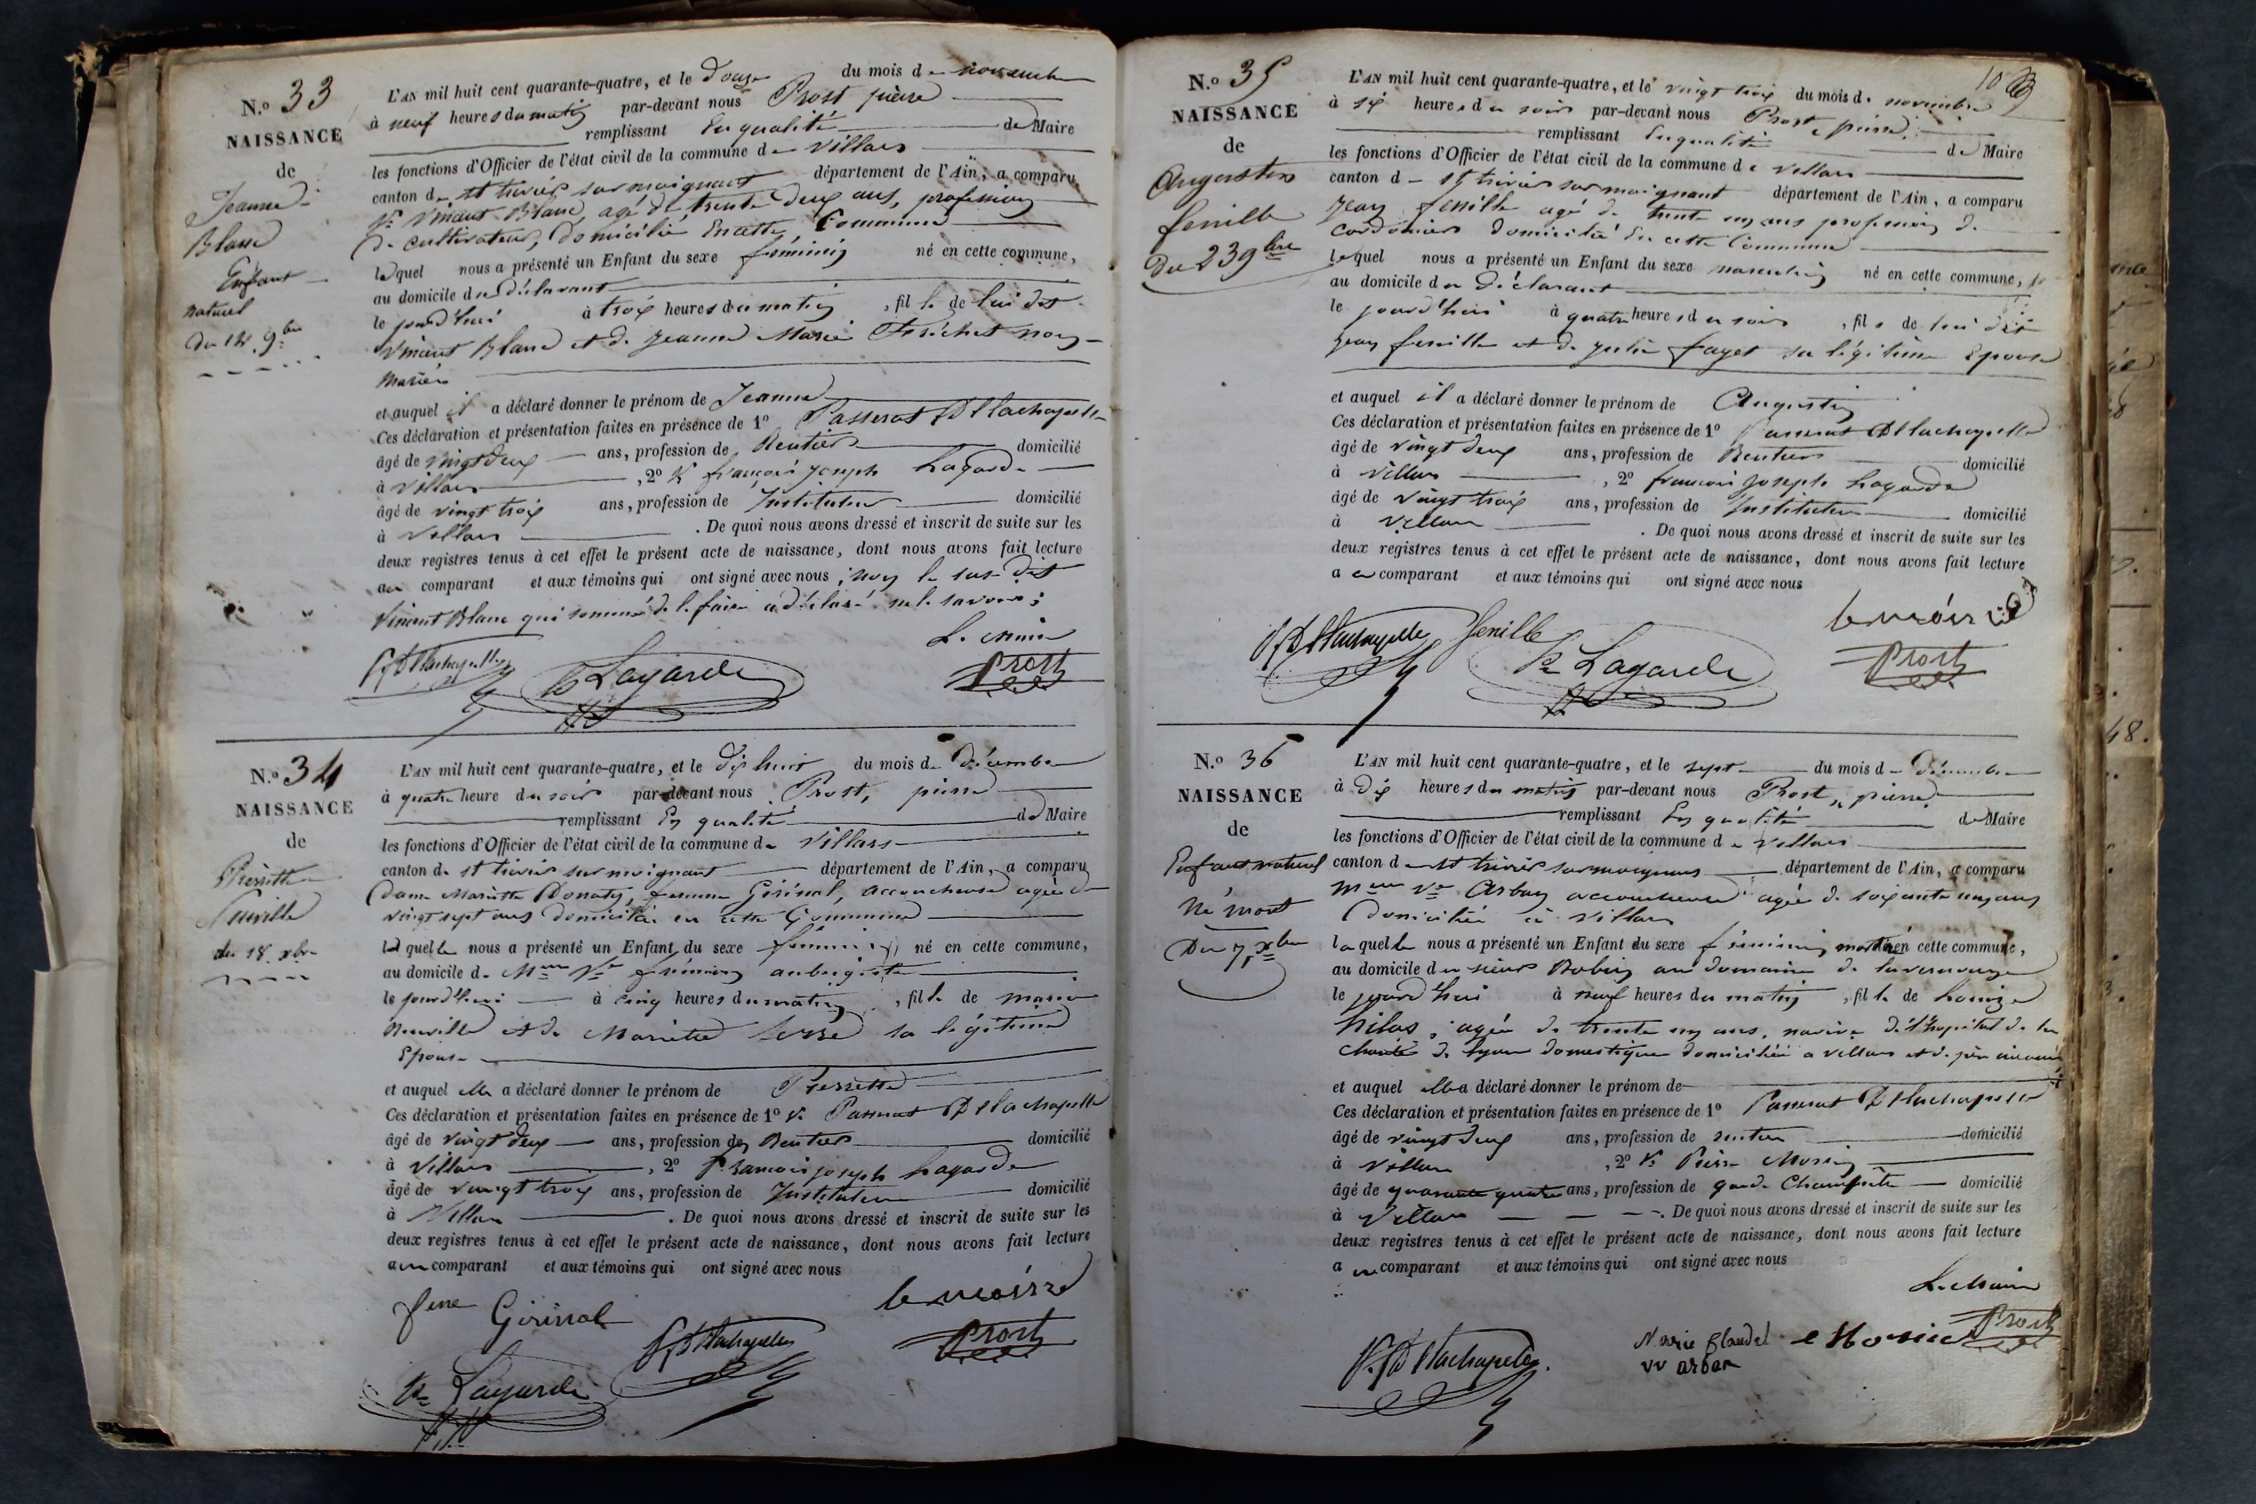 N.º 33
NAISSANCE
de
Jeanne
Blanc
Enfant
naturel
du 12. 9.bre
L'AN mil huit cent quarante-quatre, et le Douze du mois de novembre
à neuf heures du matin par-devant nous Prost pierre
remplissant En qualité de Maire
les fonctions d'Officier de l'état civil de la commune de Villars
canton de st trivier sur moignant département de l'Ain, a comparu
Sr. Vincent Blanc, agé de trente deux ans, profession
de cultivateur, domicilié en cette Commune
lequel nous a présenté un Enfant du sexe féminin né en cette commune,
au domicile du déclarant
le jourd'hui à trois heures du matin, fille de lui dit
Vincent Blanc et de Jeanne Marie Frichet non
Mariés
et auquel il a déclaré donner le prénom de Jeanne
Ces déclaration et présentation faites en présence de 1º Passerat Dllachapelle
âgé de vingt deux ans, profession de Rentier domicilié
à Villars, 2º Sr. françois Joseph Lagarde
âgé de vingt trois ans, profession de Instituteur domicilié
à Villars. De quoi nous avons dressé et inscrit de suite sur les
deux registres tenus à cet effet le présent acte de naissance, dont nous avons fait lecture
au comparant et aux témoins qui ont signé avec nous, non le sus dit
Vincent Blanc qui sommé de le faire a déclaré ne le savoir;
Le Maire
P. Dllachapelle Lagarde Prost
N.º 34
NAISSANCE
de
Pierrette
Neuville
du 18. xbre
L'AN mil huit cent quarante-quatre, et le dix huit du mois de Décembre
à quatre heure du soir par-devant nous Prost, pierre
remplissant En qualité de Maire
les fonctions d'Officier de l'état civil de la commune de Villars
canton de st trivier sur moignant département de l'Ain, a comparu
Dame Mariette Donaty, femme Girinal, accoucheuse agée de
vingt sept ans domiciliée en cette Commune
laquelle nous a présenté un Enfant du sexe féminin né en cette commune,
au domicile de Mme Vve aubergiste
le jourd'hui à cinq heures du matin, fille de
Neuville et de Mariette sa légitime
Epouse
et auquel elle a déclaré donner le prénom de Pierrette
Ces déclaration et présentation faites en présence de 1º Sr. Passerat Dllachapelle
âgé de vingt deux ans, profession de Rentier domicilié
à Villars, 2º françois joseph Lagarde
âgé de vingt trois ans, profession de Instituteur domicilié
à Villars. De quoi nous avons dressé et inscrit de suite sur les
deux registres tenus à cet effet le présent acte de naissance, dont nous avons fait lecture
au comparant et aux témoins qui ont signé avec nous
fme Girinal le maire
P. Dllachapelle Prost
Lagarde
N.º 35
NAISSANCE
de
Augustin
fenille
Du 23 9bre
L'AN mil huit cent quarante-quatre, et le vingt trois du mois de novembre
à six heures du soir par-devant nous Prost, pierre
remplissant En qualité de Maire
les fonctions d'Officier de l'état civil de la commune de Villars
canton de st trivier sur moignant département de l'Ain, a comparu
Jean fenille agé de trente un ans profession de
cordonnier domicilié en cette Commune
lequel nous a présenté un Enfant du sexe masculin né en cette commune,
au domicile du Déclarant
le jourd'hui à quatre heures du soir, fils de lui dit
Jean fenille et de Julie fayet sa légitime Epouse
et auquel il a déclaré donner le prénom de Augustin
Ces déclaration et présentation faites en présence de 1º Passerat Dllachapelle
âgé de vingt deux ans, profession de Rentier domicilié
à Villars, 2º françois Joseph Lagarde
âgé de vingt trois ans, profession de Instituteur domicilié
à Villars. De quoi nous avons dressé et inscrit de suite sur les
deux registres tenus à cet effet le présent acte de naissance, dont nous avons fait lecture
au comparant et aux témoins qui ont signé avec nous
le maire
P. Dllachapelle fenille Lagarde Prost
N.º 36
NAISSANCE
de
Enfant naturel
Né mort
Du 7 xbre
L'AN mil huit cent quarante-quatre, et le sept du mois de Décembre
à Dix heures du matin par-devant nous Prost, pierre
remplissant En qualité de Maire
les fonctions d'Officier de l'état civil de la commune de Villars
canton de st trivier sur moignans département de l'Ain, a comparu
Mme Ve Arban accoucheuse agée de soixante un ans
Domiciliée à Villars
laquelle nous a présenté un Enfant du sexe féminin mort né en cette commune,
au domicile du sieur Robin au domaine de
le jourd'hui à neuf heures du matin, fille de Louize
hilas, agée de trente un ans, de l'hopital de la
charité de Lyon domestique domiciliée a Villars et de père inconnu
et auquel elle a déclaré donner le prénom de
Ces déclaration et présentation faites en présence de 1º Passerat Dllachapelle
âgé de vingt deux ans, profession de rentier domicilié
à Villars, 2º Sr. Pierre Morin
âgé de quarante quatre ans, profession de garde Champêtre domicilié
à Villars. De quoi nous avons dressé et inscrit de suite sur les
deux registres tenus à cet effet le présent acte de naissance, dont nous avons fait lecture
a comparant et aux témoins qui ont signé avec nous
Le Maire
P. Dllachapelle Marie Claudel Prost
vv arban